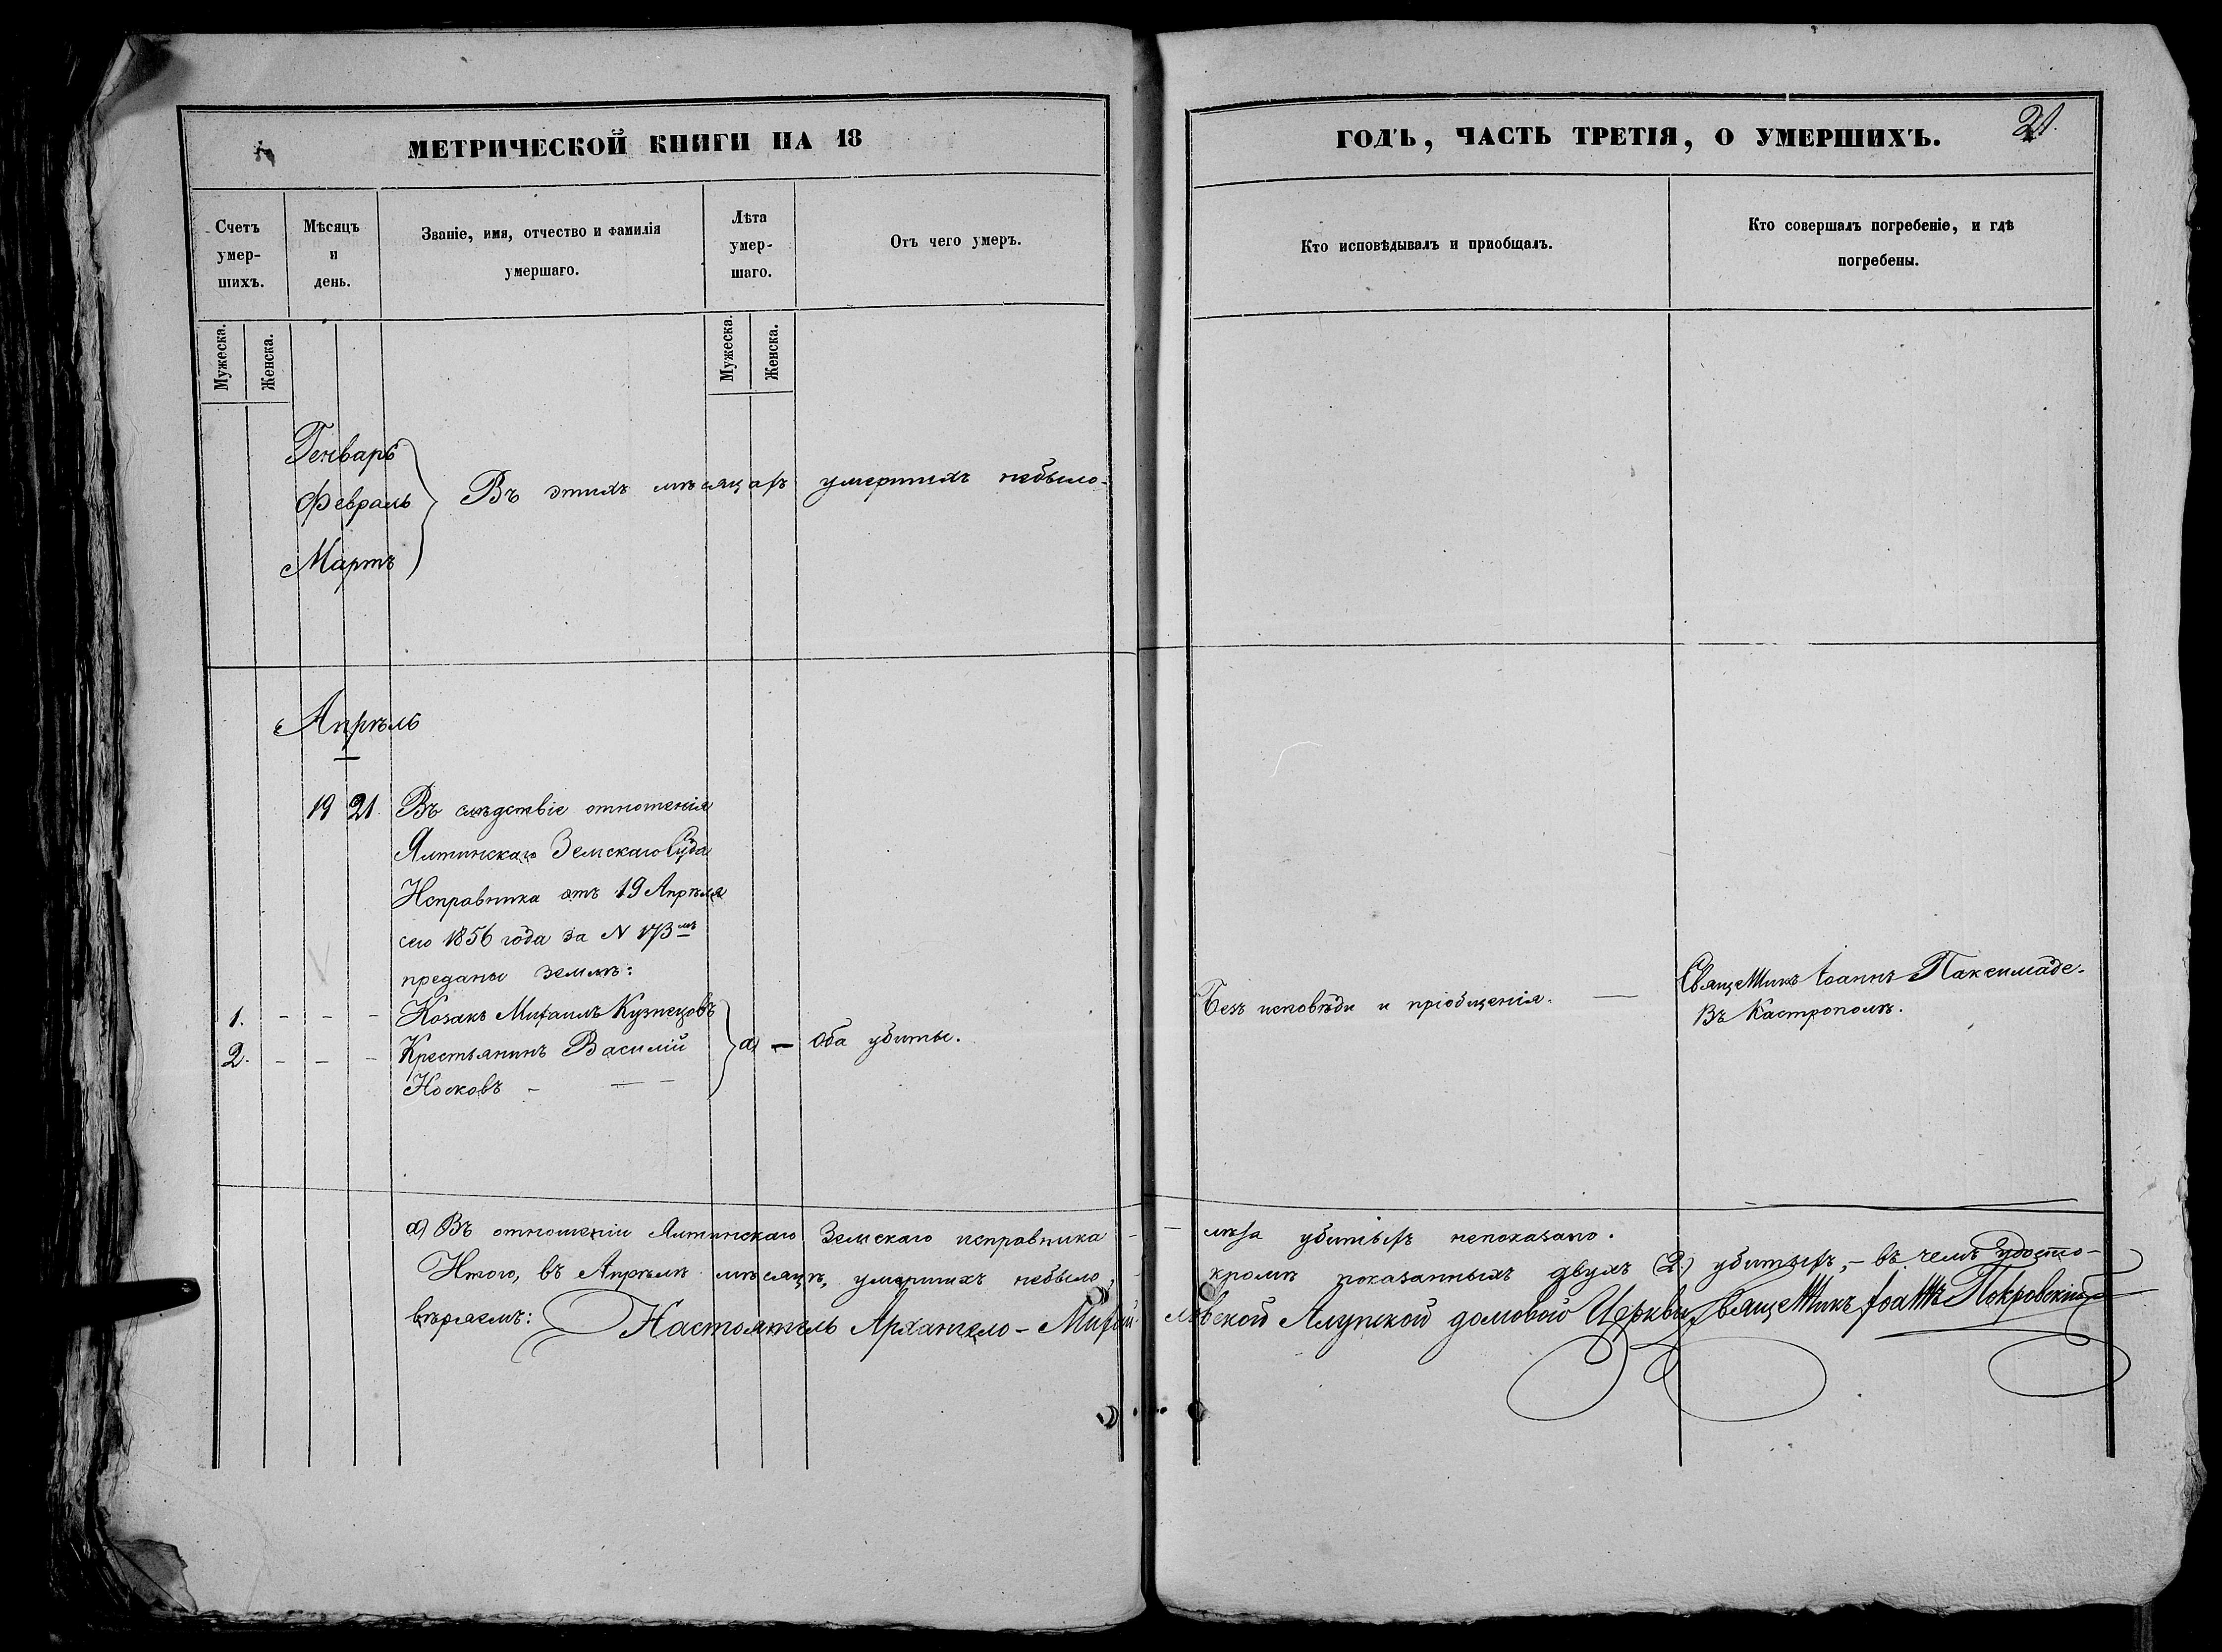 МЕТРИЧЕСКОЙ КНИГИ НА 18
Счетъ умер-шихъ.
Мѣсяцъ и день.
Званіе, имя, отчество и фамилія умершаго.
Лѣта умер-шаго.
Отъ чего умеръ.
Мужеска.
Женска.
Мужеска.
Женска.
Генварь
Февраль
Мартъ
Въ этихъ мѣсяцахъ умершихъ небыло.
Апрѣль
19 21. Въ слѣдствіе отношенія
Ялтинскаго Земскаго Суда
Исправника отъ 19 Апрѣля
сего 1856 года за N 173мъ
преданы землѣ:
1. - - - Козакъ Михаилъ Кузнецовъ
2. - - - Крестьянинъ Василій
Носковъ -
а) - Оба убиты.
ГОДЪ, ЧАСТЬ ТРЕТІЯ, О УМЕРШИХЪ.
21.
Кто исповѣдывалъ и приобщалъ.
Кто совершалъ погребеніе, и гдѣ погребены.
Безъ исповѣди и пріобщенія.
Священникъ Іоаннъ Паксимаде.
Въ Кастрополѣ.
а) Въ отношеніи Ялтинскаго Земскаго исправника - лѣта убитыхъ непоказано.
Итого, въ Апрѣлѣ мѣсяцѣ, умершихъ небыло, кромѣ показанныхъ двухъ (2.) убитыхъ, - въ чемъ удосто-
вѣряемъ: Настоятель Архангело-Михайловской Алупской домовой Церкви, Священникъ Іоаннъ Покровскій